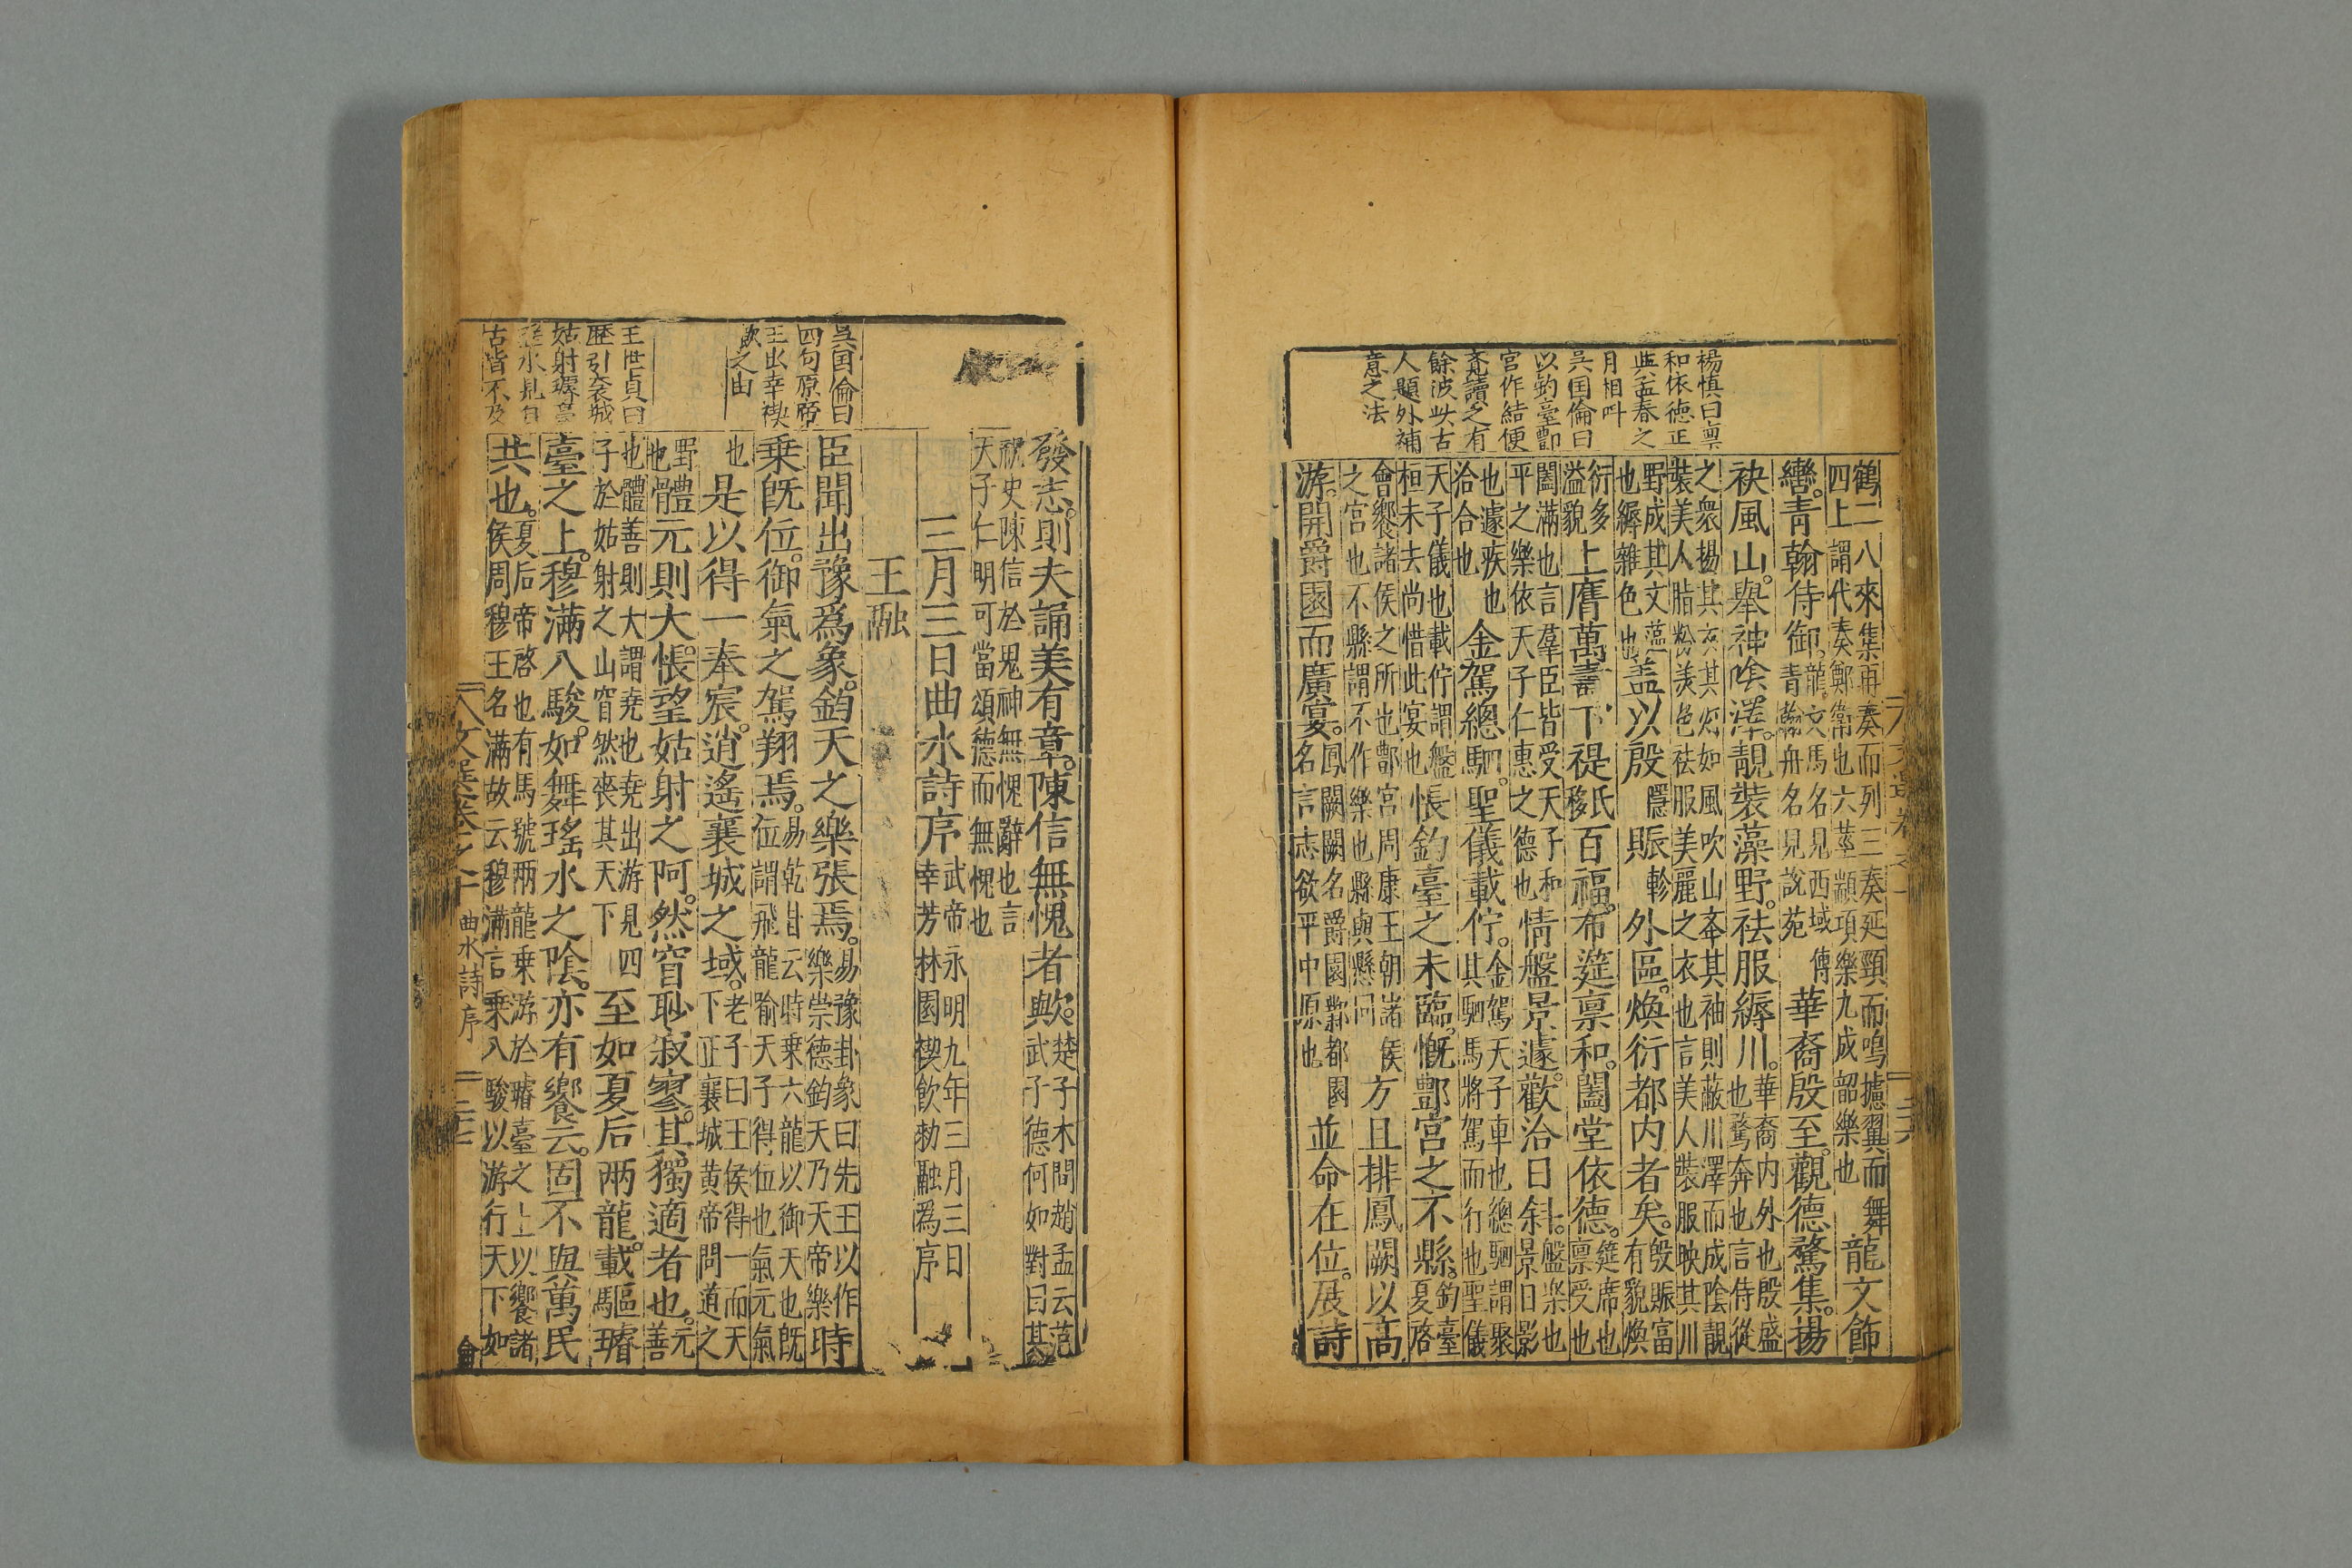 楊慎曰禀
和依德正
與孟春之
月相叶
吳国倫曰
以釣臺酆
宮作結便
覺讀之有
餘波此古
人題外補
意之法
鶴二八來集再奏而列三奏延頸而鳴攄翼而舞
四上謂代奏鄭衛也六莖顓頊樂九成韶樂也
龍文飾
轡青翰侍御。
龍文馬名見西域傳
青翰舟名見說苑
華裔殷至。觀德騖集。揚
袂風山。舉神陰澤。靚裝藻野。袪服縟川。
華裔内外也殷盛
也騖奔也言侍從
之衆揚其衣其灼如風吹山夲其袖則蔽川澤而成陰靚
裝美人脂粉美色袪服美麗之衣也言美人裝服映其川
野成其文藻
也縟雜色也
盖以殷
隱
賑
軫
外區。煥衍都内者矣。
殷賑富
有貌煥
衍多
溢貌
上膺萬壽。下禔
氏
移
百福。布筵禀和。闔堂依德。
筵席也
禀受也
闔滿也言羣臣皆受天子和
平之樂依天子仁惠之德也
情盤景遽。歡洽日斜。
盤樂也
景日影
也遽疾也
洽合也
金駕總駟。聖儀載佇。
金駕天子車也總駟謂聚
其駟馬將駕而行也聖儀
天子儀也載佇謂盤
桓未去尚惜此宴也
悵釣臺之未臨。慨酆宮之不縣。
釣臺
夏啓
會饗諸侯之所也酆宮周康王朝諸侯
之宮也不縣謂不作樂也縣與懸同
方且排鳳闕以高
游。開爵園而廣宴。
鳳闕闕名爵園鄴都園
名言志欲平中原也
並命在位。展詩
發志。則夫誦美有章。陳信無愧者歟。
楚子木問趙孟云范
武子德何如對曰其
祝史陳信於鬼神無愧辭也言
天子仁明可當頌德而無愧也
三月三日曲水詩序
武帝永明九年三月三日
幸芳林園禊飲勑融爲序
王融
臣聞出豫爲象。鈞天之樂張焉。
易豫卦象曰先王以作
樂崇德鈞天乃天帝樂
時
乗旣位。御氣之駕翔焉。
易乾卦云時乗六龍以御天也旣
位謂飛龍喻天子得位也氣元氣
也
是以得一奉宸。逍遙襄城之域。
老子曰王侯得一而天
下正襄城黄帝問道之
野
也
體元則大。悵望姑射之阿。然窅眇寂寥。其獨適者也。
元
善
也體善則大謂堯也堯出游見四
子於姑射之山窅然喪其天下
至如夏后两龍。載驅璿
臺之上。穆滿八駿。如舞瑤水之陰。亦有饗云。固不與萬民
共也。
夏后帝啓也有馬號兩龍乗游於璿臺之上以饗諸
侯周穆王名滿故云穆滿言乗八駿以游行天下如
吳国倫曰
四句原帝
王出幸禊
飲之由
王世貞曰
歷引襄城
姑射璿臺
瑤水見自
古皆不及
文選卷之十 曲水詩序 三七